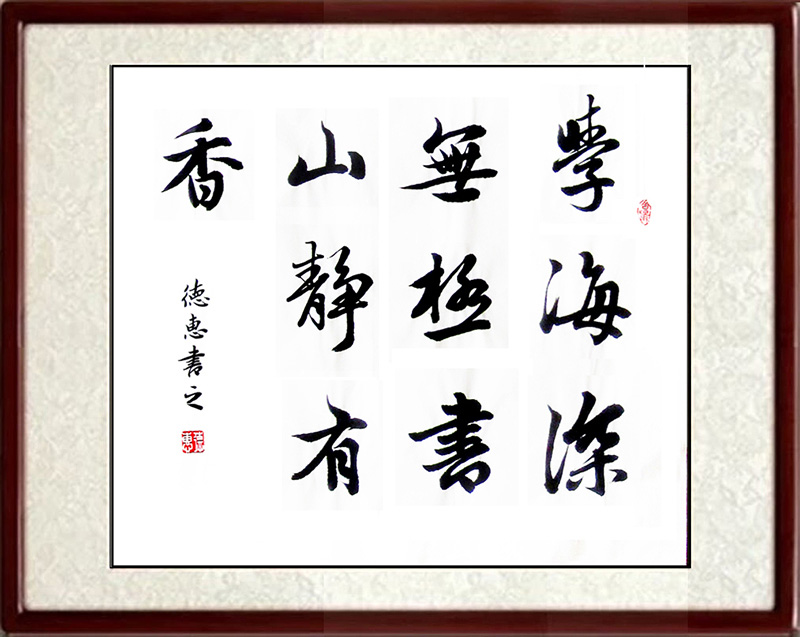 學海深
無極書
山靜有
香
德惠書之